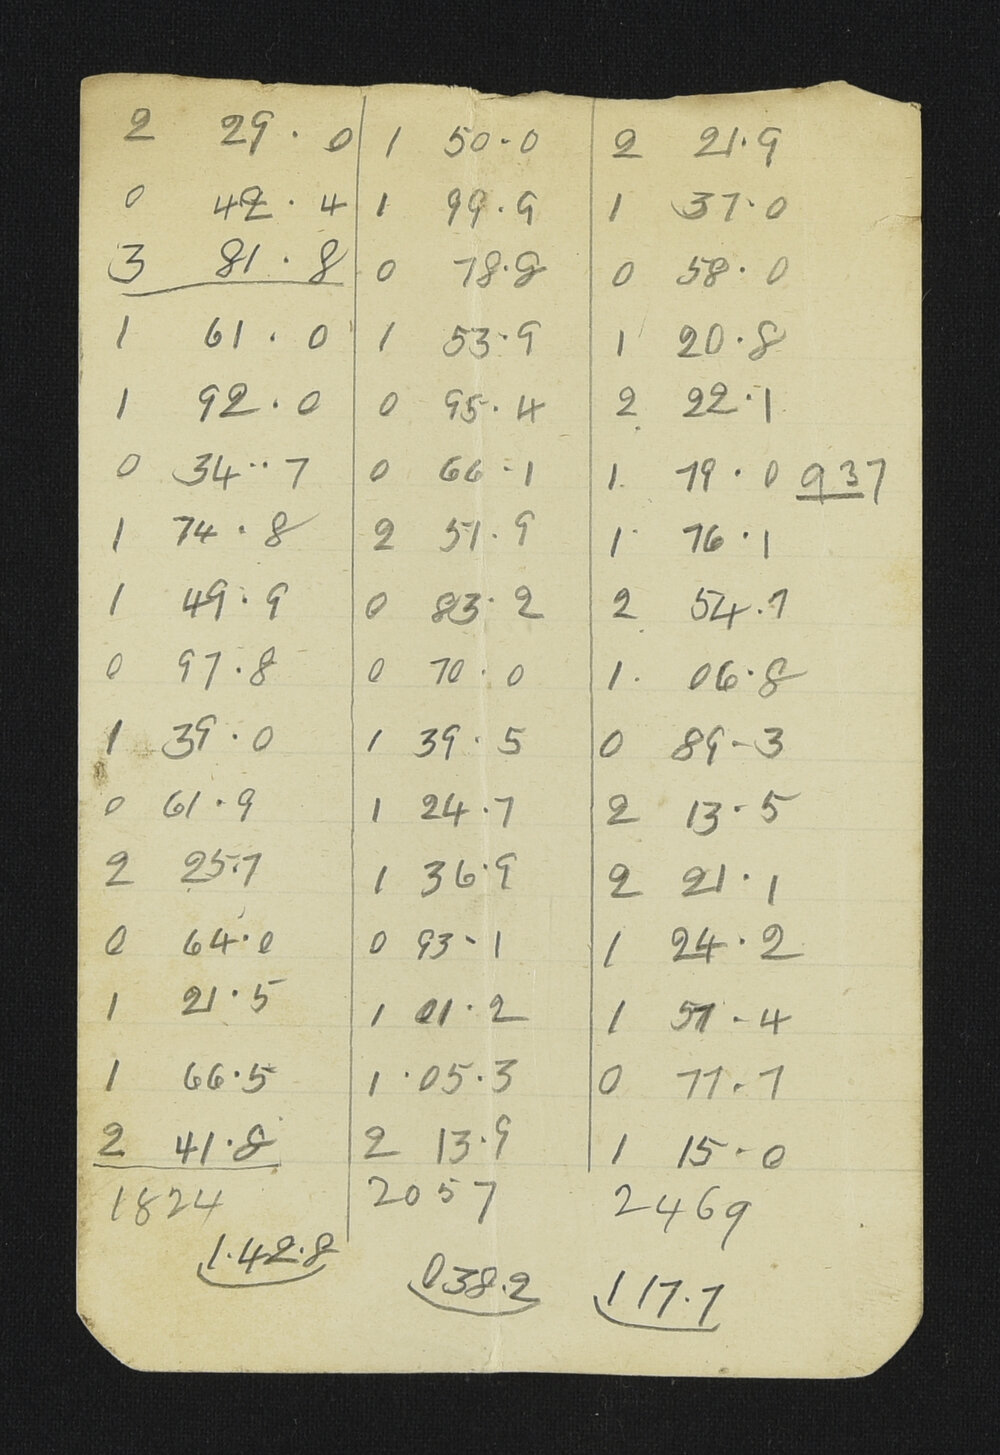 2 29.0 1 50.0 2 21.9
0 42.4 1 99.9 1 37.0
3 81.8 0 78.8 0 58.0
1 61.0 1 53.9 1 20.8
1 92.0 0 95.4 2 22.1
0 34..7 0 66-1 1. 79.0 937
1 74.8 2 51.9 1. 76.1
1 49.9 0 83.2 2 54.7
0 97.8 0 70.0 1. 06.8
1 39.0 1 39.5 0 89-3
0 61.9 1 24.7 2 13.5
2 25.7 1 36.9 2 21.1
0 64.0 0 93-1 1 24.2
1 21.5 1 01.2 1 57-4
1 66.5 1.05.3 0 77.7
2 41.8 2 13.9 1 15-0
1824 2057 2469
1.42.8 038.2 117.7